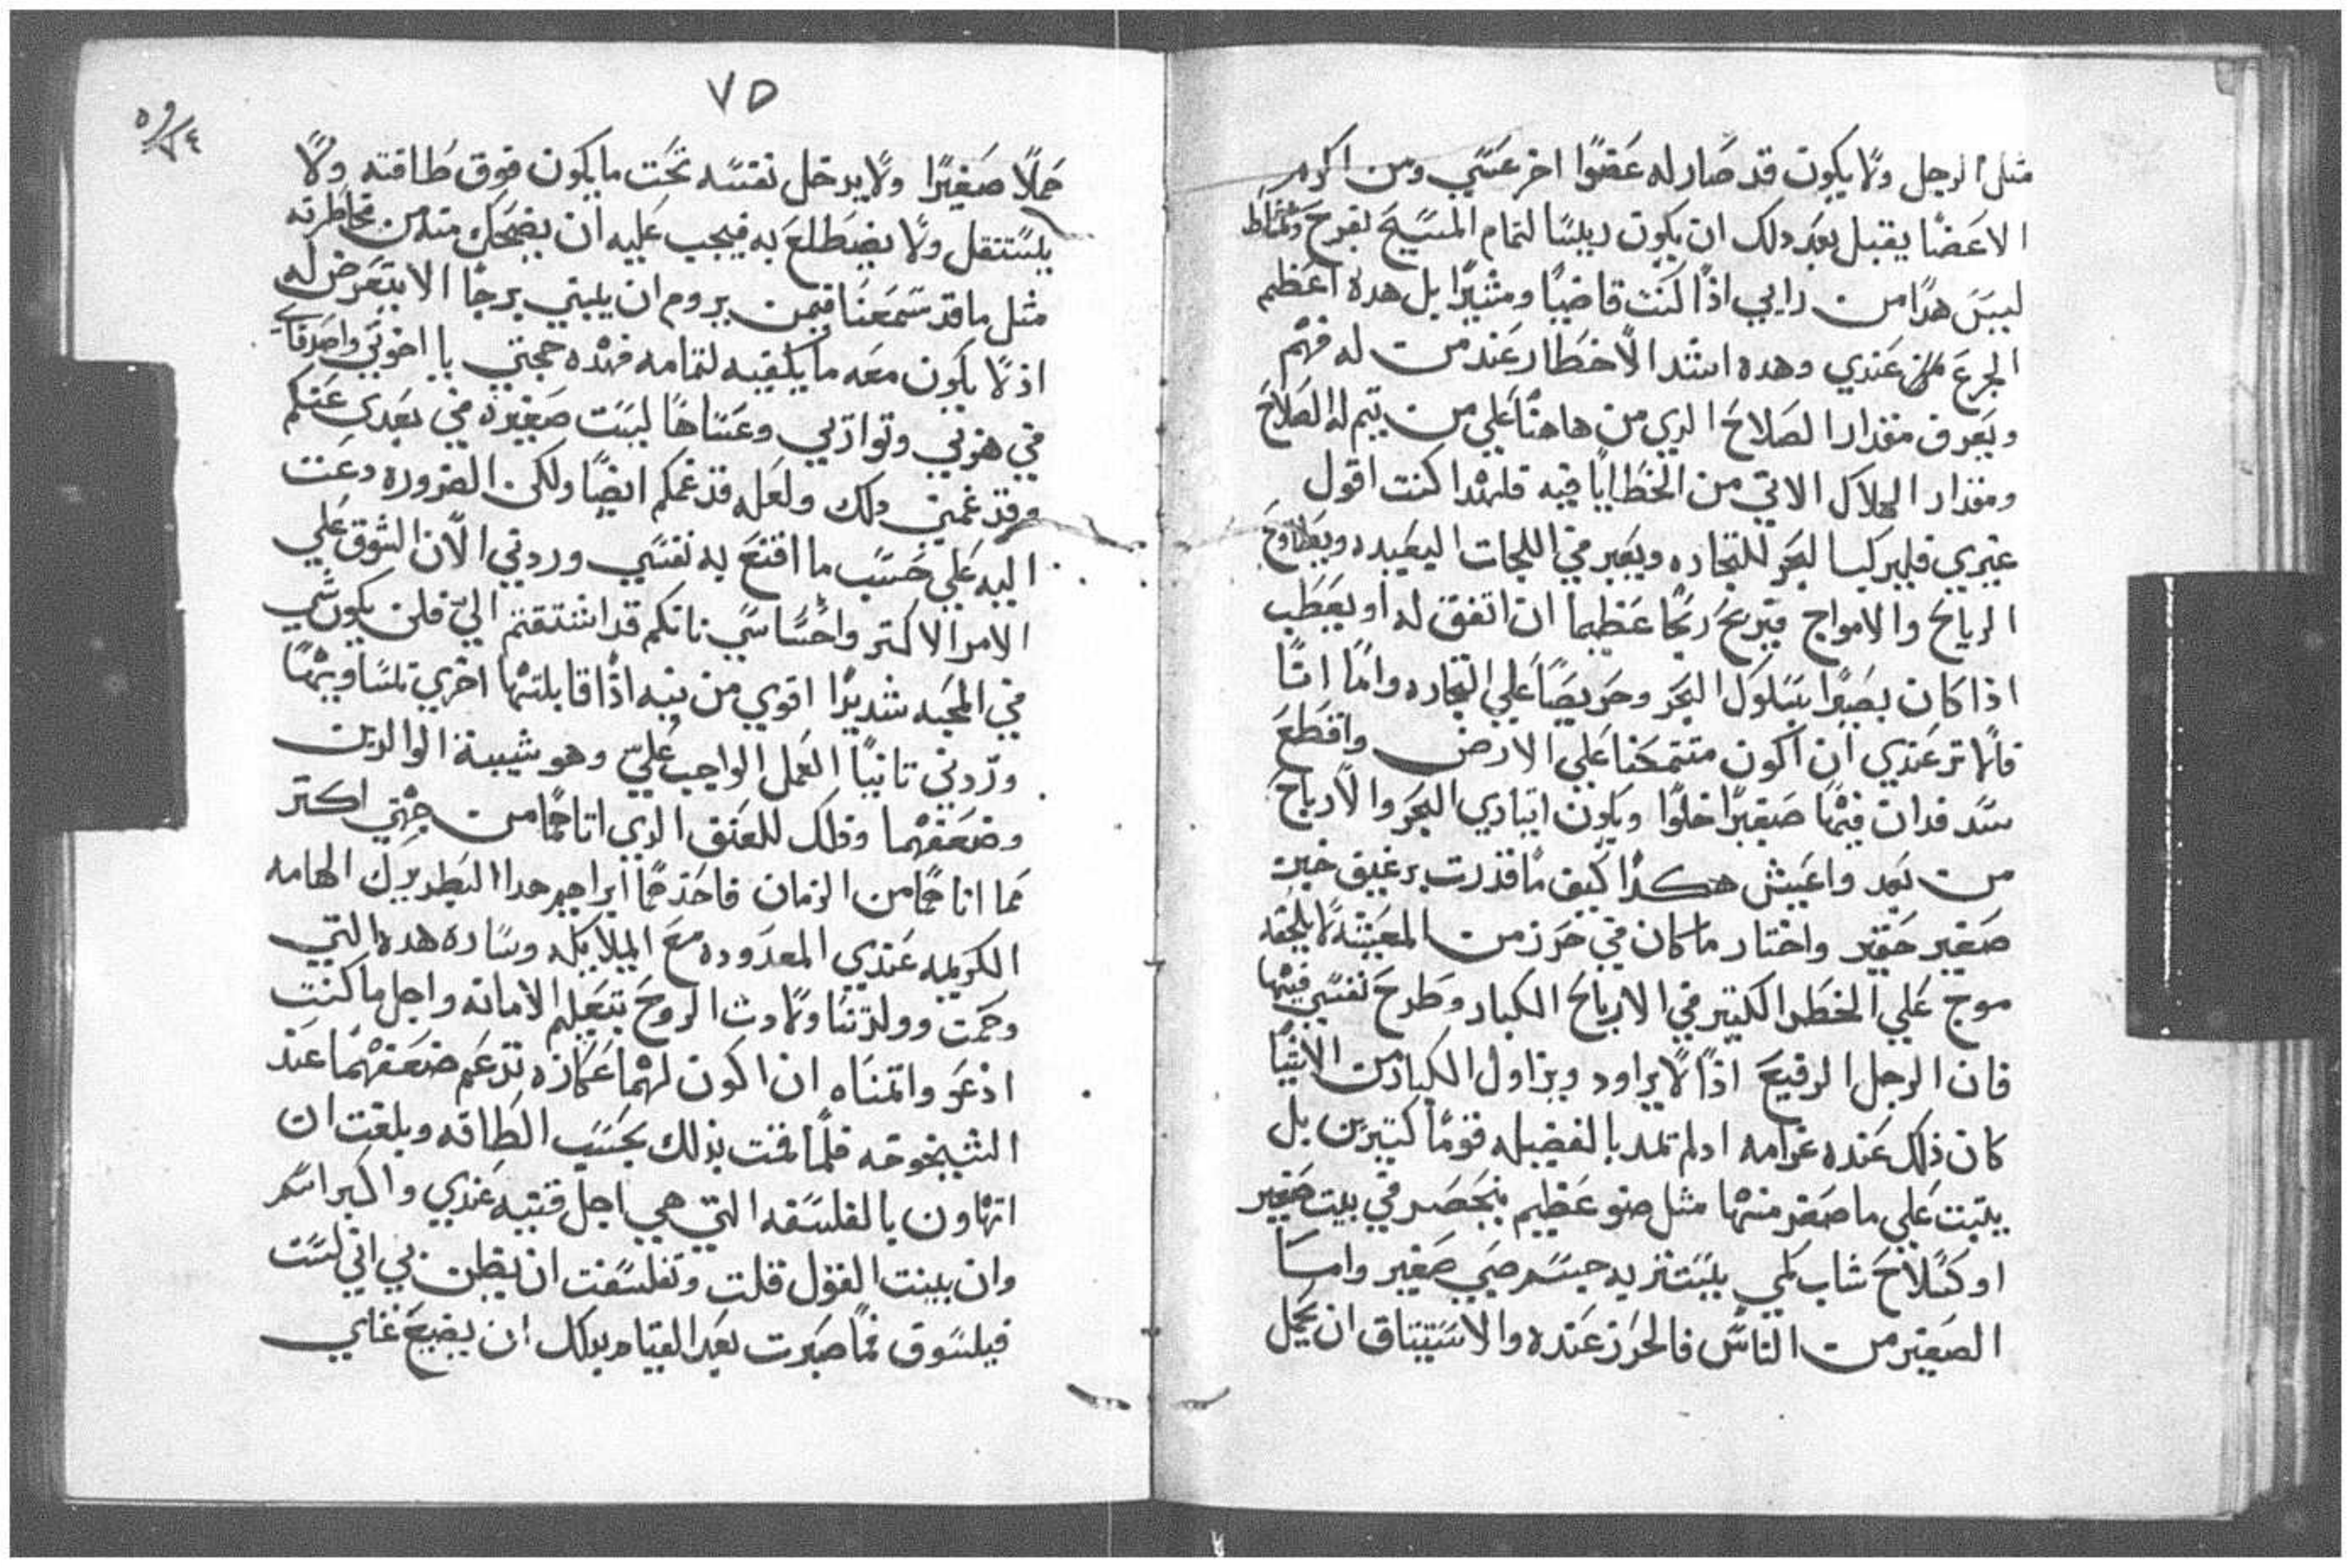 مثل الرجل ولا يكون قد صار له عضوًا اخر عسي ومن اكره
الاعضا يقبل بعد دلك ان يكون رييسًا لتمام المسيح بفرح ونشاط
ليس هدا من رايي اذا كنت قاضيًا ومشيرًا بل هده اعظم
الجزع عندي وهده اشد الاخطار عند من له فهم
ويعرف مقدار الصلاح الدي من هاهنا علي من يتم له الصلاح
ومقدار الهلاك الاتي من الخطايا فيه فلهدا كنت اقول
غيري فليركب البحر للتجاره ويعبر في اللجات البعيده ويطاوح
الرياح والامواج فيربح ربحًا عظيما ان اتفق له او يعطب
اذا كان بصيرًا بسلوك البحر وحريصًا علي التجاره واما انا
فالاتر عندي ان اكون متمحنا علي الارض واقطع
سد فدان فيها صغيرًا خلوًا ويكون ايتادي البحر والارباح
من بعد واعيش هكدا كيف ما قدرت برغيف خبز
صغير حقير واختار ما كان في حرز من المعيشه لا يلحقه
موج علي الخطر الكتير في الارباح الكبار وطرح نفسي فيها
فان الرجل الرفيع اذا لا يراود ويزاول الكبار من الاشيا
كان ذلك عنده غرامه اد لم تمد بالفضيله قومًا كتيرين بل
يتبت علي ما صغر منها مثل ضو عظيم ينحصر في بيت صغير
او كسلاح شاب كمي يستتر به جسم صبي صغير واما
الصغير من الناس فالحرز عنده والاستيثاق ان يحمل
٧٥
حملًا صغيرًا ولا يدخل نفسه تحت ما يكون فوق طاقته ولا
يستقل ولا يضطلع به فيجب عليه ان يضحك منه من مخاطرته
مثل ما قد سمعنا فيمن يروم ان يبني برجًا الا يتعرض له
اذ لا يكون معه ما يكفيه لتمامه فهده حجتي يا اخوتي واصدقاي
في هزتي وتوازيي وعساها ليست صغيره في بعدي عنكم
وقد غمني دلك ولعله قد غمكم ايضًا ولكن الضروره دعت
اليه علي حسب ما اقنع به نفسي وردني الان الشوق علي
الامر الاكتر واحساسي بانكم قد اشتقتم اليّ فلن يكون شي
في المحبه شديدًا اقوي من بيه اذا قابلتها اخري تساويها
وردني تانيًا العمل الواجب عليّ وهو شيبة الوالدين
وضعفهما ودلك للعنق الدي اناحما من جهتي اكتر
مما اناحما من الزمان فاحدهما ابراهيم هدا البطريرك الهامه
الكريمه عندي المعدوده مع الملايكه وساره هده التي
وحمت وولدتنا ولادث الروح بتعليم الامانه واجل ما كنت
ادعو واتمناه ان اكون لهما عكازه تدعم ضعفهما عند
الشيخوخه فلما قمت بذلك بحسب الطاقه وبلغت ان
اتهاون بالفلسفه التي هي اجل قنيه عندي واكبر اسم
وان بينت القول قلت وتفلسفت ان يظن بي اني لست
فيلسوف فما صبرت بعد القيام بدلك ان يضيع غناي